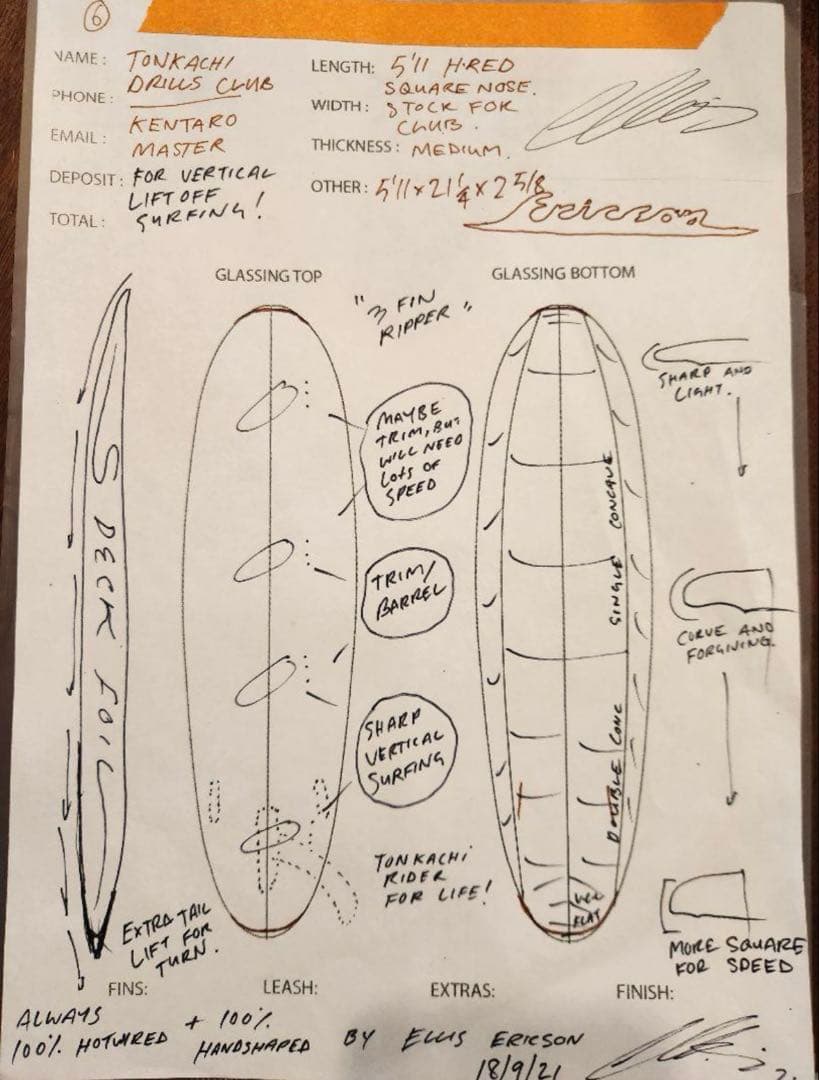 6
NAME: TONKACHI
DRILLS CLUB
PHONE:
EMAIL: KENTARO
MASTER
DEPOSIT: FOR VERTICAL
LIFT OFF
SURFING!
TOTAL:
LENGTH: 5'11 H-RED
SQUARE NOSE.
WIDTH: STOCK FOR
CLUB.
THICKNESS: MEDIUM.
OTHER: 5'11 x 21 1/4 x 2 5/8
Ericson
GLASSING TOP
GLASSING BOTTOM
"3 FIN
RIPPER"
MAYBE
TRIM, BUT
WILL NEED
LOTS OF
SPEED
TRIM/
BARREL
SHARP
VERTICAL
SURFING
TONKACHI
RIDER
FOR LIFE!
S DECK FOIL
EXTRA TAIL
LIFT FOR
TURN.
SINGLE CONCAVE
DOUBLE CONC
VEE
FLAT
SHARP AND
LIGHT.
CURVE AND
FORGIVING.
MORE SQUARE
FOR SPEED
FINS:
LEASH:
EXTRAS:
FINISH:
ALWAYS
100% HOTWIRED + 100%
HANDSHAPED BY ELLIS ERICSON
18/9/21